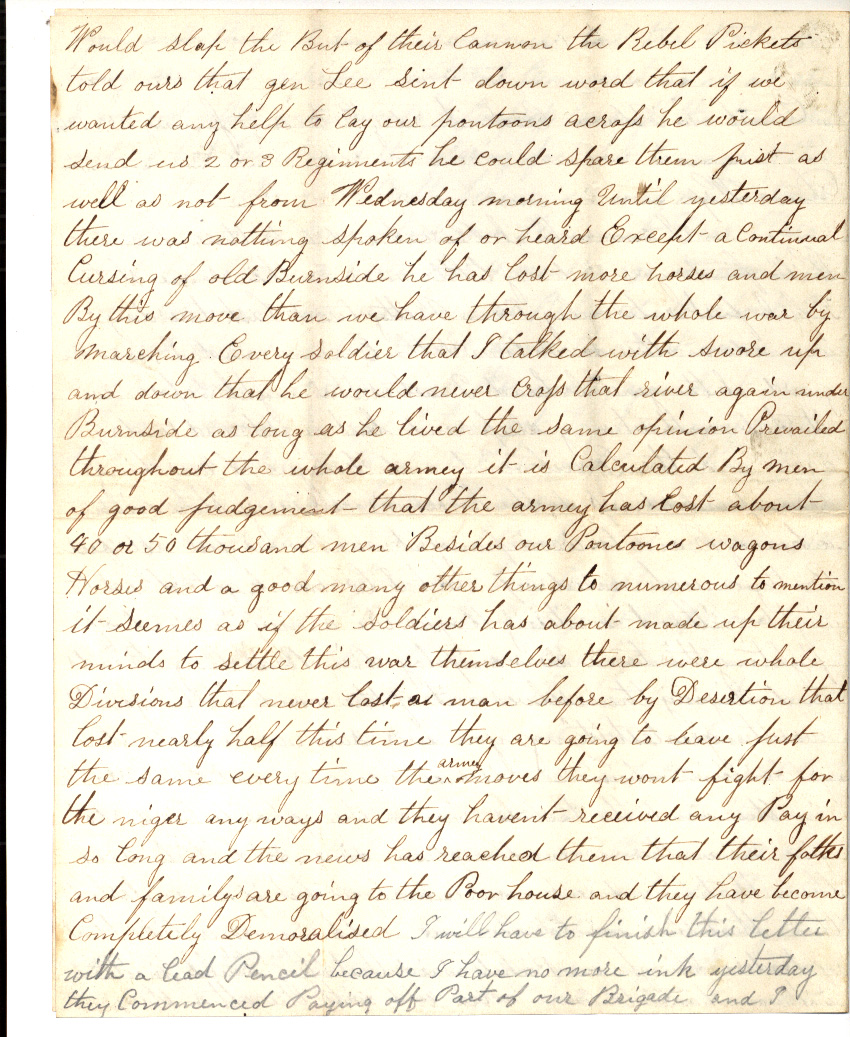 Would slap the But of their Cannon the Rebel Pickets
told ours that gen Lee sint down word that if we
wanted any help to lay our pontoons across he would
send us 2 or 3 Regimments he could spare them just as
well as not from Wednesday morning Until yesterday
there was nothing spoken of or heard Except a Continual
Cursing of old Burnside he has lost more horses and men
By this move than we have through the whole war by
marching. Every soldier that I talked with swore up
and down that he would never cross that river again under
Burnside as long as he lived the same opinion Prevailed
throughout the whole armey it is Calculated By men
of good judgement that the armey has lost about
40 or 50 thousand men Besides our Pontoones wagons
Horses and a good many other things to numerous to mention
it seemes as if the soldiers has about made up their
minds to settle this war themselves there were whole
Divisions that never lost a man before by Desertion that
lost nearly half this time they are going to leave just
the same every time the armey moves they wont fight for
the niger any ways and they havent received any Pay in
so long and the news has reached them that their folks
and familys are going to the Poor house and they have become
Completely Demoralised I will have to finish this letter
with a lead Pencil because I have no more ink yesterday
they Commenced Paying off Part of our Brigade and I